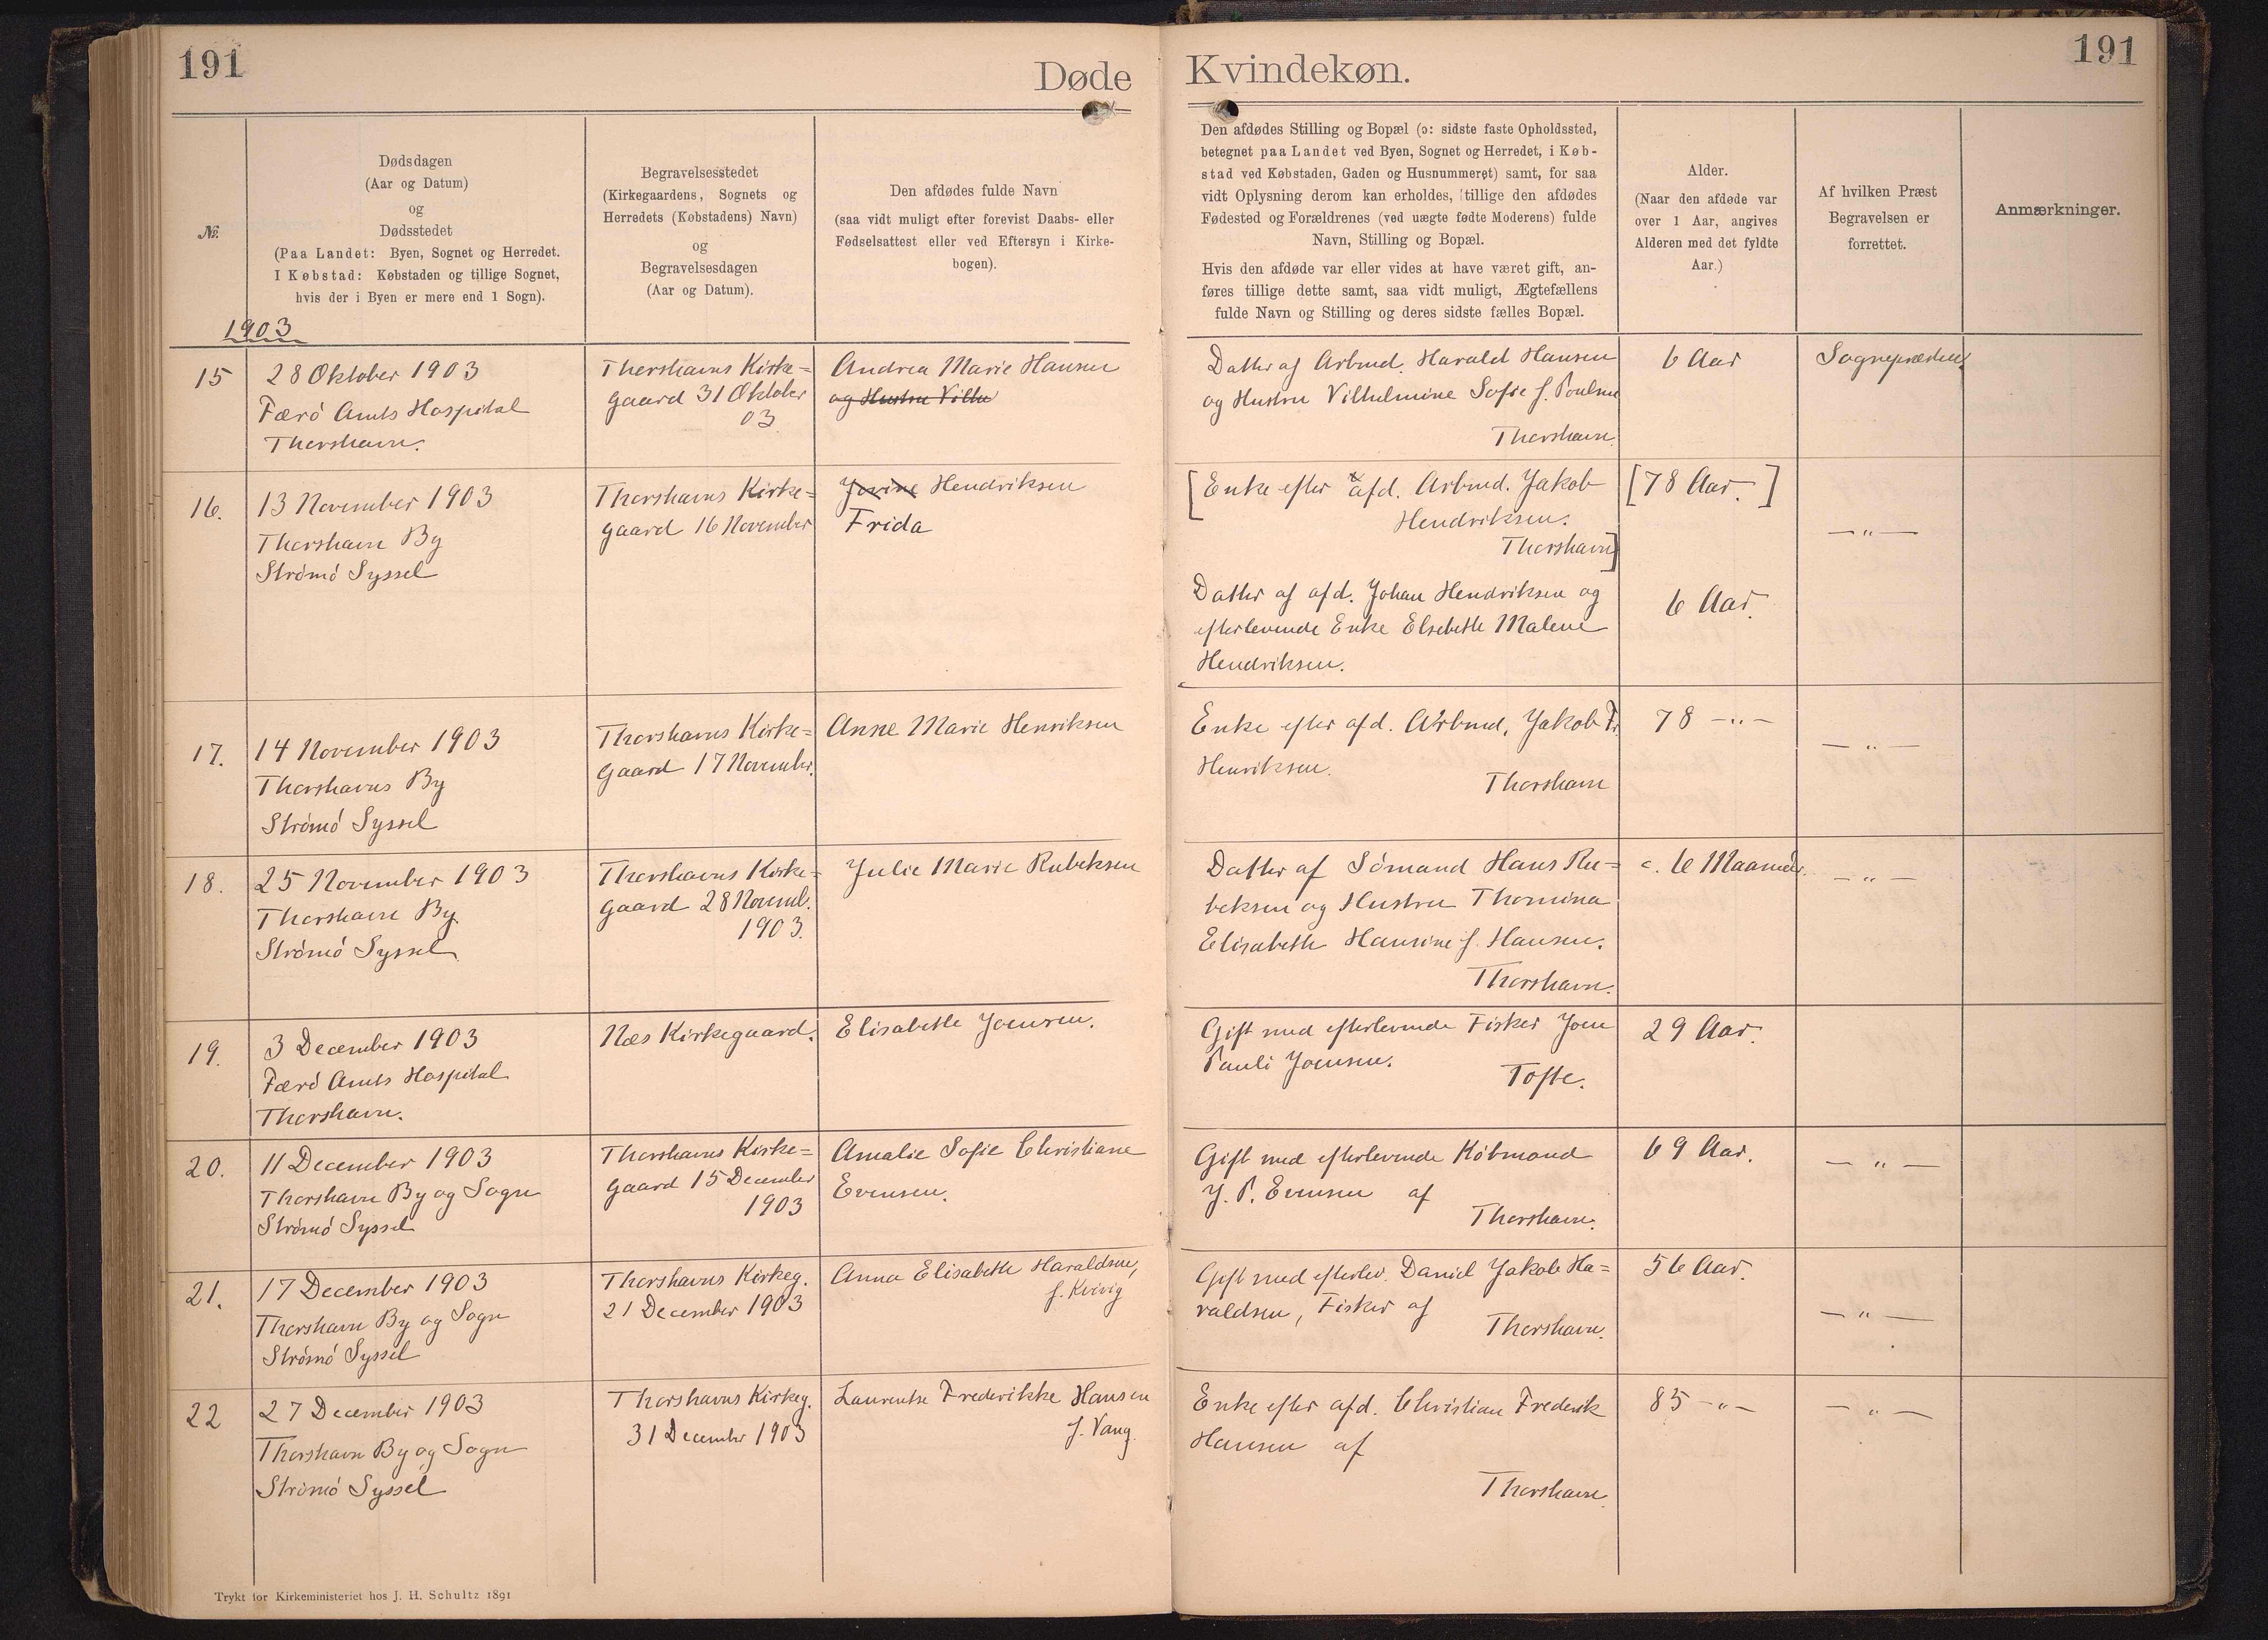 191
Døde
Kvindekøn.
191
№
Dødsdagen
(Aar og Datum)
og
Dødsstedet
(Paa Landet: Byen, Sognet og Herredet.
I Købstad: Købstaden og tillige Sognet,
hvis der i Byen er mere end 1 Sogn).
Begravelsesstedet
(Kirkegaardens, Sognets og
Herredets (Købstadens) Navn)
og
Begravelsesdagen
(Aar og Datum).
Den afdødes fulde Navn
(saa vidt muligt efter forevist Daabs- eller
Fødselsattest eller ved Eftersyn i Kirke-
bogen).
Den afdødes Stilling og Bopæl (ɔ: sidste faste Opholdssted,
betegnet paa Landet ved Byen, Sognet og Herredet, i Køb-
stad ved Købstaden, Gaden og Husnummeret) samt, for saa
vidt Oplysning derom kan erholdes, tillige den afdødes
Fødested og Forældrenes (ved uægte fødte Moderens) fulde
Navn, Stilling og Bopæl.
Hvis den afdøde var eller vides at have været gift, an-
føres tillige dette samt, saa vidt muligt, Ægtefællens
fulde Navn og Stilling og deres sidste fælles Bopæl.
Alder.
(Naar den afdøde var
over 1 Aar, angives
Alderen med det fyldte
Aar.)
Af hvilken Præst
Begravelsen er
forrettet.
Anmærkninger.
1903
15
28 Oktober 1903
Færö Amts Hospital
Thorshavn.
Thorshavns Kirke=
gaard 31 Oktober
03
Andrea Marie Hansen
og Hustru Vilhe
Datter af Arbmd. Harald Hansen
og Hustru Vilhelmine Sofie f. Poulsen
Thorshavn.
6 Aar
Sognepræsten.
16.
13 November 1903
Thorshavn By
Strömö Syssel
Thorshavns Kirke=
gaard 16 November
Hendriksen
Frida
[Enke efter afd. Arbmd. Jakob
Hendriksen.
Thorshavn]
[78 Aar.]
— " —
Datter af afd. Johan Hendriksen og
efterlevende Enke Elsebeth Malene
Hendriksen.
6 Aar.
17.
14 November 1903
Thorshavns By
Strömö Syssel
Thorshavns Kirke=
gaard 17 Novembr.
Anne Marie Henriksen
Enke efter afd. Arbmd. Jakob Fr.
Henriksen.
Thorshavn
78 — " —
— " —
18.
25 November 1903
Thorshavn By.
Strömö Syssel
Thorshavns Kirke=
gaard 28 Novemb.
1903.
Julie Marie Rubeksen
Datter af Sömand Hans Ru=
beksen og Hustru Thomina
Elisabeth Hansine f. Hansen.
Thorshavn.
c. 6 Maaneder.
— " —
19.
3 December 1903
Færö Amts Hospital
Thorshavn.
Næs Kirkegaard.
Elisabeth Joensen.
Gift med efterlevende Fisker Joen
Pauli Joensen.
Tofte.
29 Aar.
20.
11 December 1903
Thorshavn By og Sogn
Strömö Syssel
Thorshavns Kirke=
gaard 15 December
1903
Amalie Sofie Christiane
Evensen.
Gift med efterlevende Köbmand
J. P. Evensen af
Thorshavn.
69 Aar.
— " —
21.
17 December 1903
Thorshavn By og Sogn
Strömö Syssel
Thorshavns Kirkeg.
21 December 1903
Anna Elisabeth Haraldsen,
f. Kvivig
Gift med efterlev. Daniel Jakob Ha=
raldsen, Fisker af
Thorshavn.
56 Aar.
— " —
22
27 December 1903
Thorshavn By og Sogn
Strömö Syssel
Thorshavns Kirkeg.
31 December 1903
Laurentse Frederikke Hansen
f. Vang.
Enke efter afd. Christian Frederik
Hansen af
Thorshavn.
85 — " —
— " —
Trykt for Kirkeministeriet hos J. H. Schultz 1891